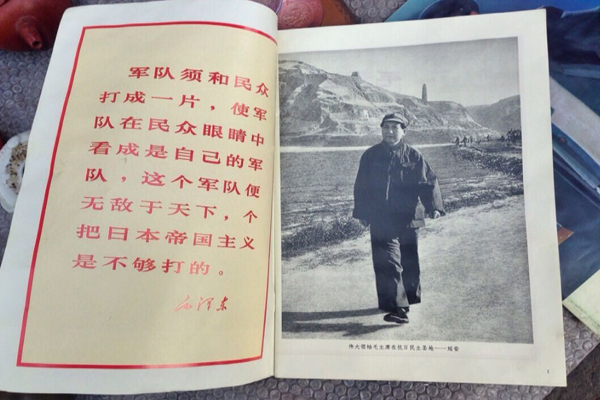 军队须和民众
打成一片，使军
队在民众眼睛中
看成是自己的军
队，这个军队便
无敌于天下，个
把日本帝国主义
是不够打的。
毛泽东
伟大领袖毛主席在抗日民主圣地——延安
1